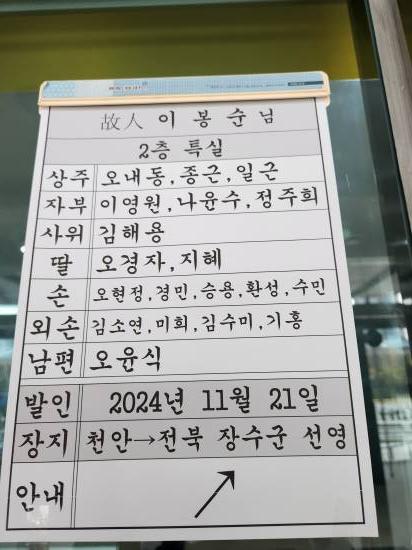 故人 이 봉 순 님
2층 특실
상주 오내동,종근,일근
자부 이영원,나윤수,정주희
사위 김해용
딸 오경자,지혜
손 오현정,경민,승용,환성,수민
외손 김소연,미희,김수미,기홍
남편 오윤식
발인 2024년 11월 21일
장지 천안→전북 장수군 선영
안내 ↗